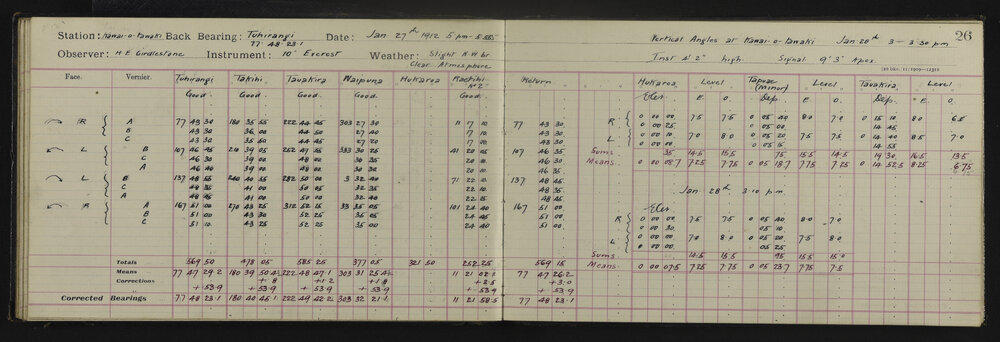 Station: Kawai-o-Kawaki Back Bearing: Tuhirangi Date: Jan 27th 1912 5 pm - 5.55
77· 48· 23·1
Observer: H E Girdlestone Instrument: 10" Exerest Weather: Slight N.W br
Clear Atmosphere
Vertical Angles at Kawai-o-Kawaki Jan 28th 3 - 3·30 pm 26
Inst 4' 2" high. Signal 9' 3" Apex.
Face. Vernier. Tuhirangi Takihi Tauakira Waipuna Hukaroa Raetihi Nº2 Return
Good Good Good Good Good
R A 77 43 30 180 35 55 222 44 45 303 27 30 11 17 10 77 43 30
B 43 30 36 00 44 50 27 40 17 10 43 30
C 43 30 35 50 44 45 27 20 17 00 43 30
L B 107 46 45 210 39 05 252 47 55 333 30 25 41 20 25 107 46 35
C 46 30 39 00 48 00 30 35 20 10 46 30
A 46 40 39 00 48 00 30 30 20 10 46 35
L B 137 48 55 240 40 55 282 50 00 3 32 40 71 22 137 48 45
C 48 35 41 00 50 05 32 35 22 10 48 35
A 48 45 41 00 50 00 32 40 22 15 48 45
R A 167 51 00 270 43 25 312 52 15 33 35 05 101 24 40 167 51 00
B 51 00 43 30 52 25 35 05 24 45 51 00
C 51 10 43 25 52 25 35 00 24 40 51 00
Totals 569 50 478 05 585 25 377 05 321 50 252 25 569 15
Means 77 47 29·2 180 39 50·4 222 48 47·1 303 31 25·4 11 21 02·1 77 47 26·2
Corrections + ·8 + 1·2 + 1·8 + 2·5 + 3·0
+ 53·9 + 53·9 + 53·9 + 53·9 + 53·9 + 53·9
Corrected Bearings 77 48 23·1 180 40 45·1 222 49 42·2 303 32 21·1 11 21 58·5 77 48 23·1
Hukaroa Level Tapuae (Minor) Level Tauakira Level
Elev E. O. Dep. E O. Dep. E. O.
R 0 00 00 7·5 7·5 0 05 40 8·0 7·0 0 15 10 8·0 6·5
0 00 25 05 00 14 45
L 0 00 10 7·0 8·0 0 05 20 7·5 7·5 0 14 40 8·5 7·0
0 00 00 05 15 14 55
Sums 35 14·5 15·5 75 15·5 14·5 19 30 16·5 13·5
Means 0 00 08·7 7·25 7·75 0 05 18·7 7·75 7·25 0 14 52·5 8·25 6·75
Jan 28th 3·10 pm
Elev
R 0 00 00 7·5 7·5 0 05 40 8·0 7·0
0 00 30 05 10
L 0 00 00 7·0 8·0 0 05 20 7·5 8·0
0 00 00 05 25
Sums 14·5 15·5 95 15·5 15·0
Means 0 00 07·5 7·25 7·75 0 05 23·7 7·75 7·5